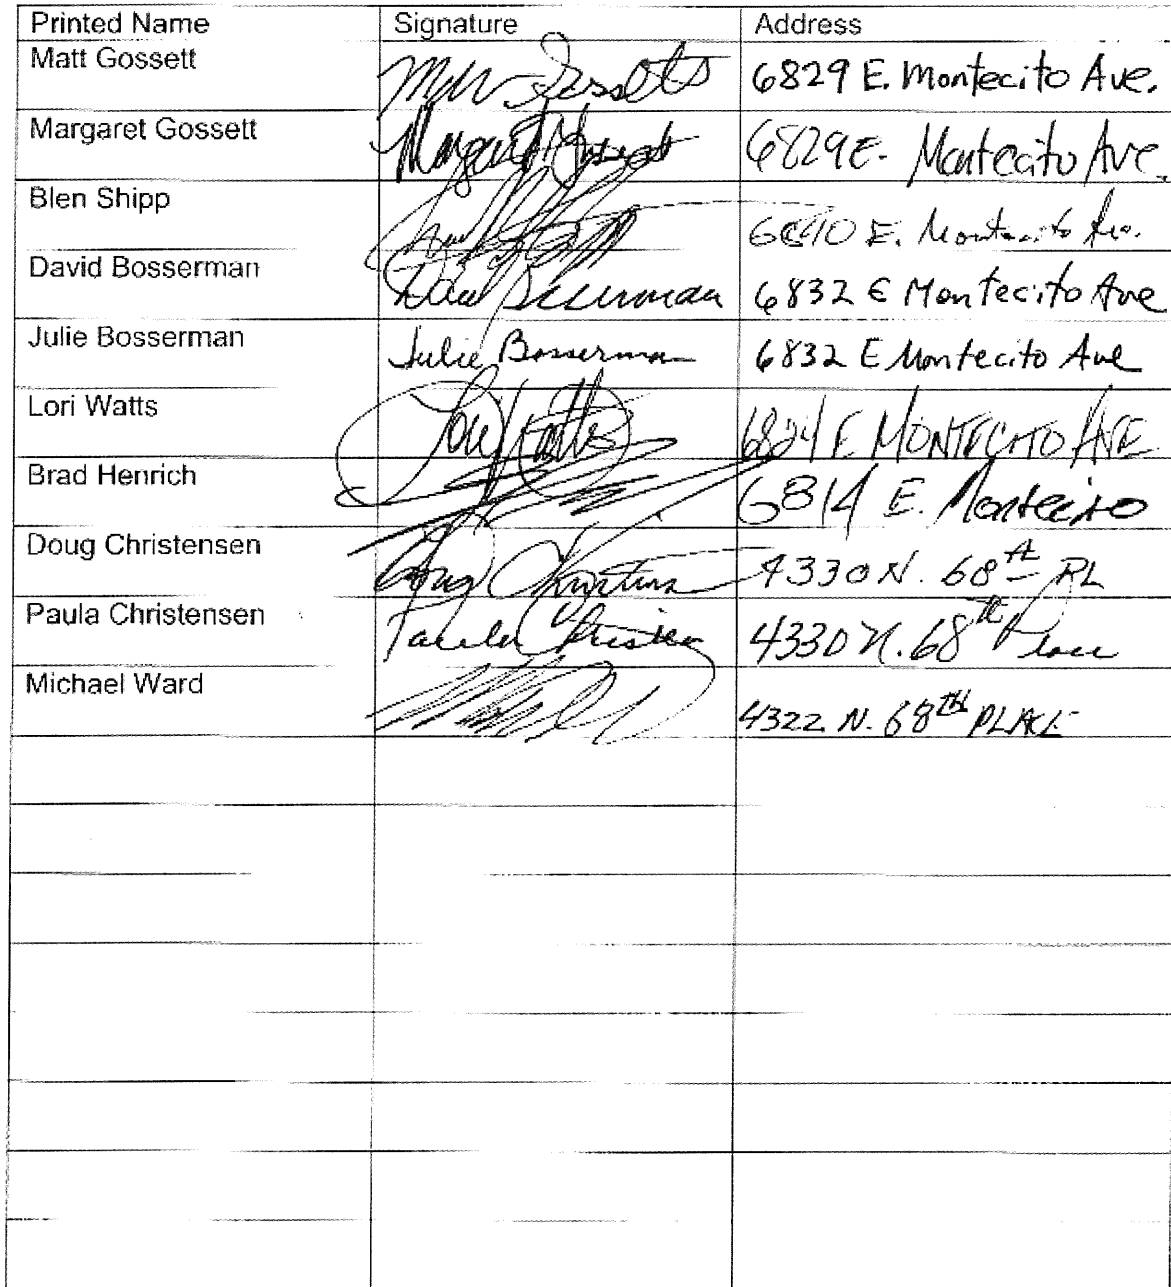 Printed Name Signature Address
Matt Gossett Gossett 6829 E. Montecito Ave.
Margaret Gossett Margaret Gossett 6829 E. Montecito Ave.
Blen Shipp E. Montecito Ave.
David Bosserman Bosserman 6832 E Montecito Ave
Julie Bosserman Julie Bosserman 6832 E Montecito Ave
Lori Watts Lori Watts 6824 E MONTECITO AVE
Brad Henrich 6814 E. Montecito
Doug Christensen Doug 4330 N. 68th PL
Paula Christensen Paula 4330 N. 68th Place
Michael Ward 4322 N. 68TH PLACE